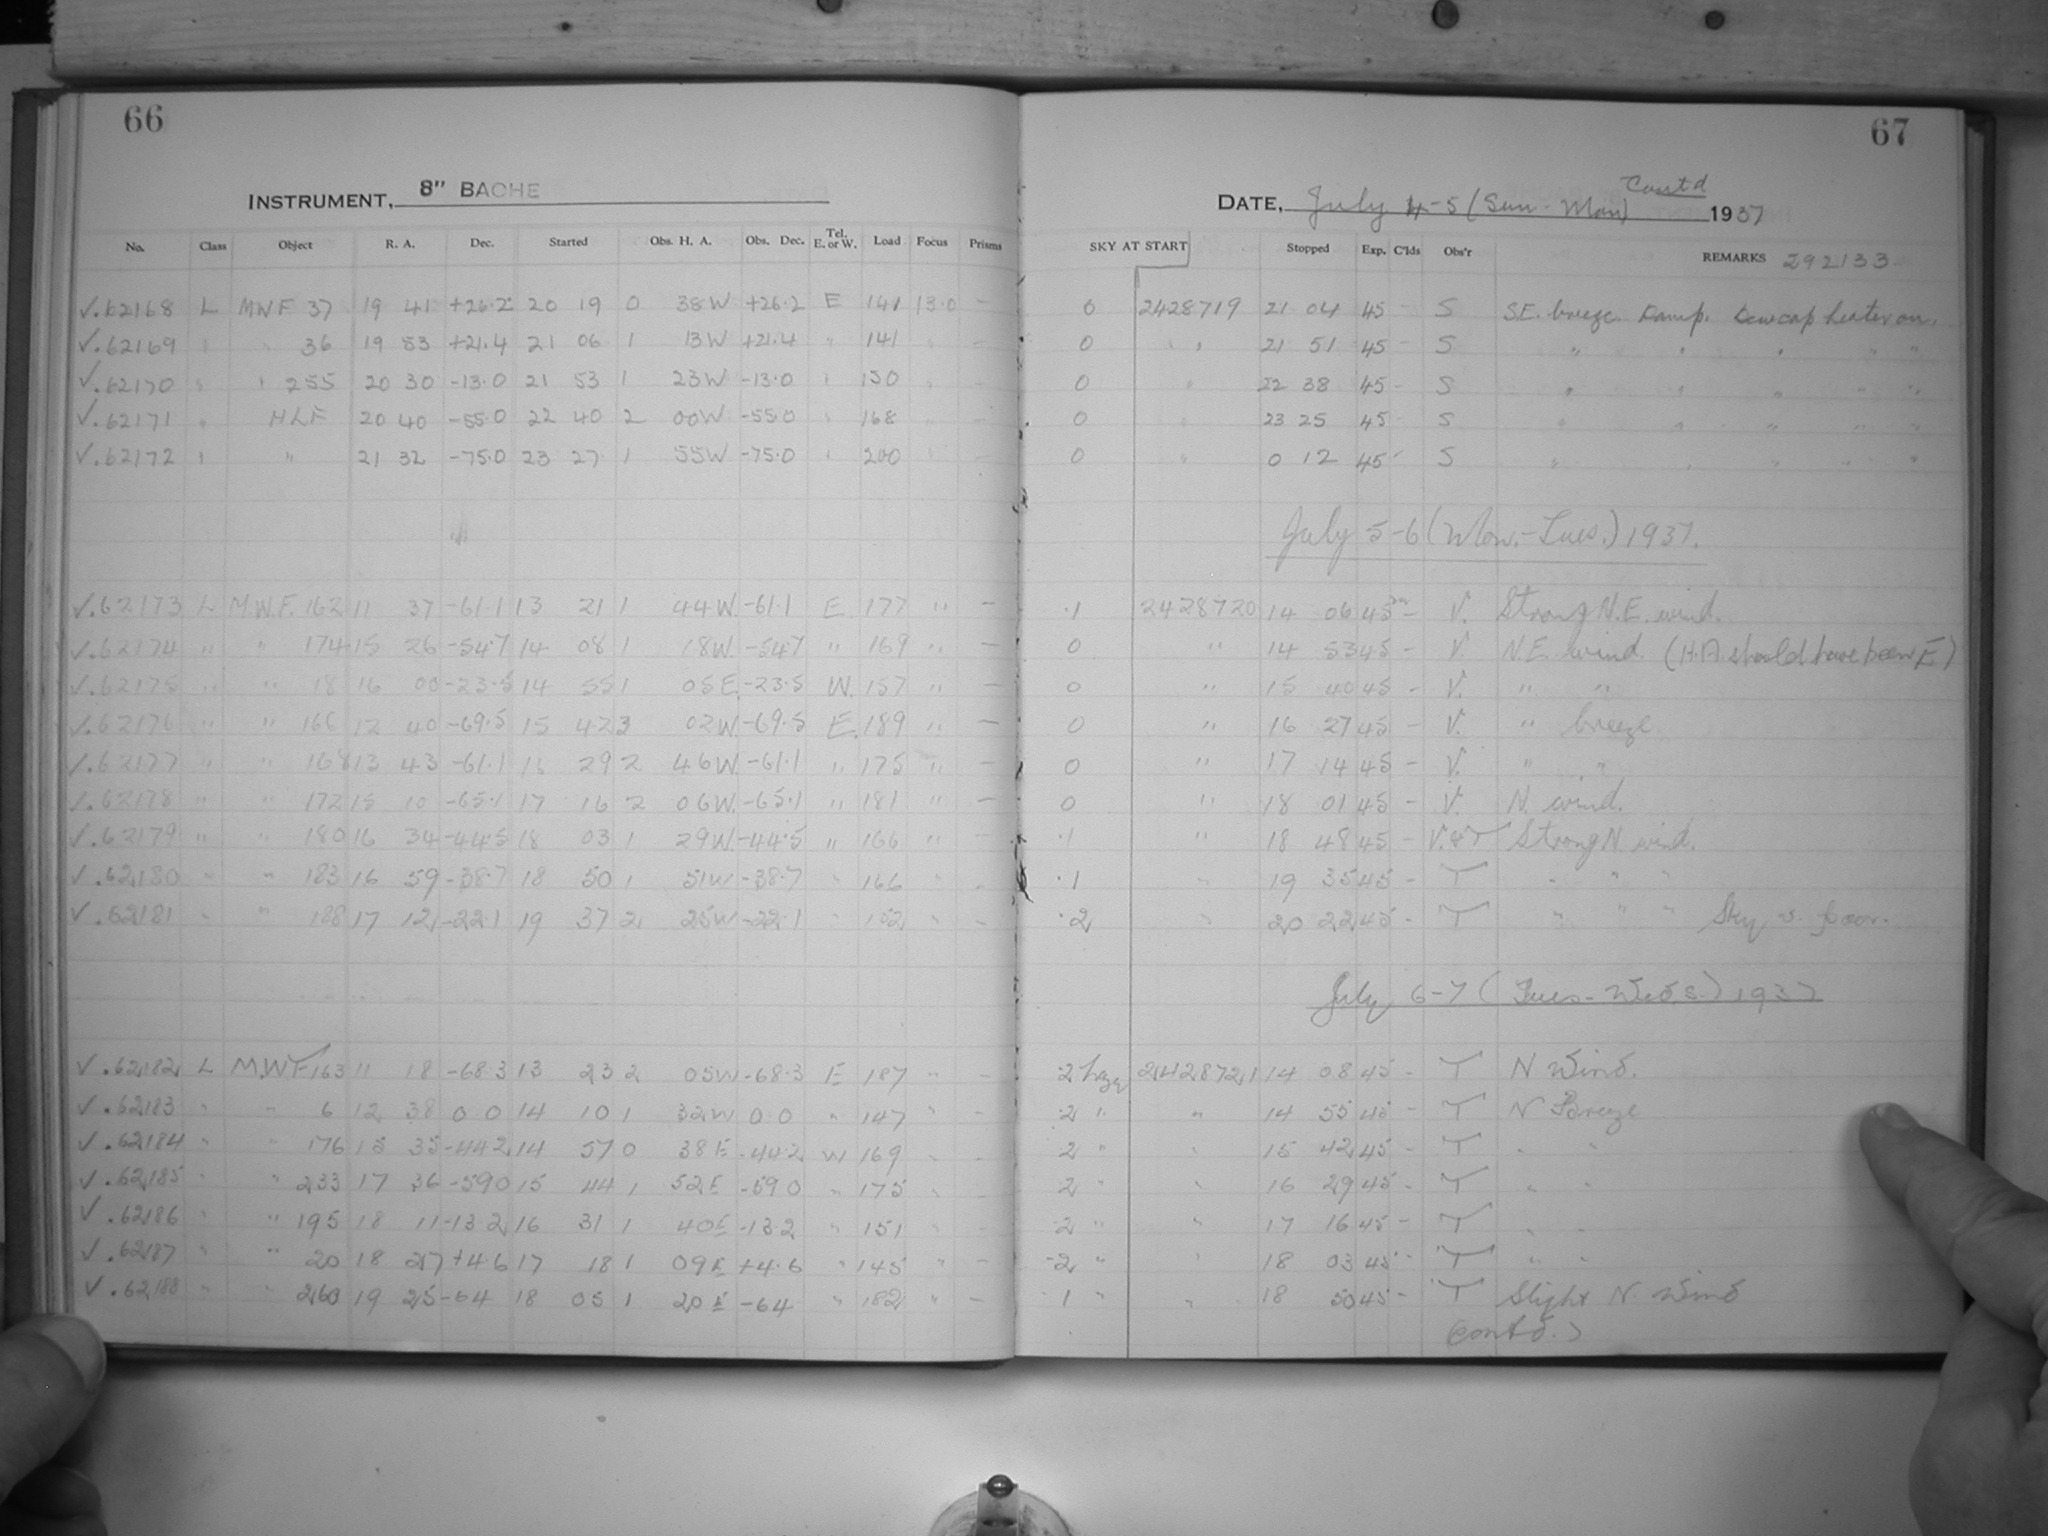 66
67
INSTRUMENT, 8" BACHE
DATE, July 4-5 (Sun-Mon) Cont'd 1937
No. Class Object R. A. Dec. Started Obs. H. A. Obs. Dec. Tel. E. or W. Load Focus Prisms SKY AT START Stopped Exp. C'lds Obs'r REMARKS 292133
√.62168 L MWF 37 19 41 +26.2 20 19 0 38W +26.2 E 141 13.0 - 0 2428719 21 04 45 - S S.E. breeze. Damp. Dewcap heater on.
√.62169 " " 36 19 53 +21.4 21 06 1 13W +21.4 " 141 " - 0 " " 21 51 45 - S " " " " "
√.62170 " " 255 20 30 -13.0 21 53 1 23W -13.0 " 150 " - 0 " 22 38 45 - S " " " " "
√.62171 " HLF 20 40 -55.0 22 40 2 00W -55.0 " 168 " - 0 " 23 25 45 - S " " " " "
√.62172 " " 21 32 -75.0 23 27 1 55W -75.0 " 200 " - 0 " 0 12 45 - S " " " " "
July 5-6 (Mon.-Tues.) 1937.
√.62173 L M.W.F. 162 11 37 -61.1 13 21 1 44W. -61.1 E. 177 " - .1 2428720 14 06 45 - V. Strong N.E. wind.
√.62174 " " 174 15 26 -54.7 14 08 1 18W. -54.7 " 169 " - 0 " 14 53 45 - V. N.E. wind. (H.A should have been E)
√.62175 " " 18 16 00 -23.5 14 55 1 05E. -23.5 W. 157 " - 0 " 15 40 45 - V. " "
√.62176 " " 166 12 40 -69.5 15 42 3 02W. -69.5 E. 189 " - 0 " 16 27 45 - V. " breeze
√.62177 " " 168 13 43 -61.1 16 29 2 46W. -61.1 " 175 " - 0 " 17 14 45 - V. " "
√.62178 " " 172 15 10 -65.1 17 16 2 06W. -65.1 " 181 " - 0 " 18 01 45 - V. N. wind.
√.62179 " " 180 16 34 -44.5 18 03 1 29W. -44.5 " 166 " - .1 " 18 48 45 - V.&T Strong N. wind.
√.62180 " " 183 16 59 -38.7 18 50 1 51W -38.7 " 166 " - .1 " 19 35 45 - T " " "
√.62181 " " 188 17 12 -22.1 19 37 2 25W -22.1 " 152 " - .2 " 20 22 45 - T " " " Sky v. poor.
July 6-7 (Tues-Weds.) 1937
√.62182 L M.W.F 163 11 18 -68.3 13 23 2 05W -68.3 E 187 " - .2 haze 2428721 14 08 45 - T N Wind.
√.62183 " " 6 12 38 0 0 14 10 1 32W 0.0 " 147 " - .2 " " 14 55 45 - T N Breeze
√.62184 " " 176 15 35 -44.2 14 57 0 38E -44.2 W 169 " - .2 " " 15 42 45 - T " "
√.62185 " " 233 17 36 -59.0 15 44 1 52E -59.0 " 175 " - .2 " " 16 29 45 - T " "
√.62186 " " 195 18 11 -13.2 16 31 1 40E -13.2 " 151 " - .2 " " 17 16 45 - T " "
√.62187 " " 20 18 27 +4.6 17 18 1 09E +4.6 " 145 " - .2 " " 18 03 45 - T " "
√.62188 " " 260 19 25 -64 18 05 1 20E -64 " 182 " - .1 " " 18 50 45 - T Slight N. Wind
(Contd.)